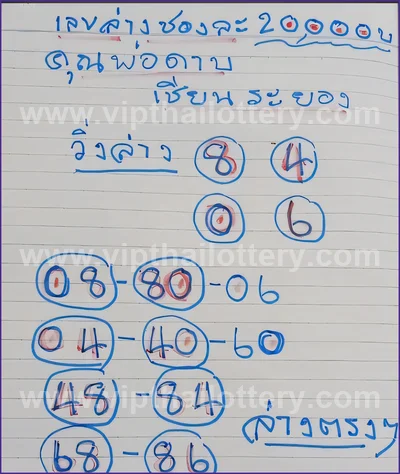 เลขล่างซองละ 20,000บ
คุณพ่อดาบ
เซียนระยอง
www.vipthailottery.com
วิ่งล่าง 8 4
0 6
www.vipthailottery.com
08-80-06
04-40-60
48 84
www.vipthailottery.com
ล่างตรงๆ
68-86